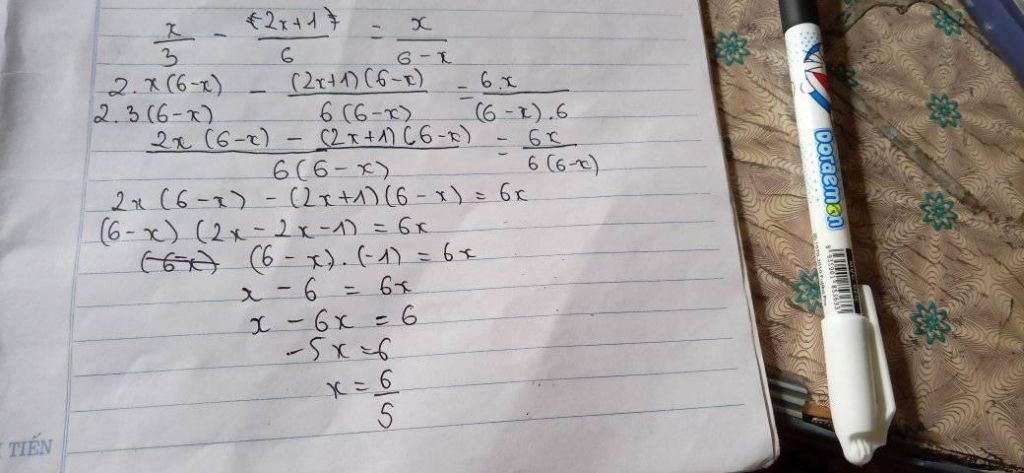 x/3 - (2x+1)/6 = x/(6-x)
2.x(6-x)/2.3(6-x) - (2x+1)(6-x)/6(6-x) = 6.x/(6-x).6
2x(6-x) - (2x+1)(6-x)/6(6-x) = 6x/6(6-x)
2x(6-x) - (2x+1)(6-x) = 6x
(6-x)(2x-2x-1) = 6x
(6-x).(-1) = 6x
x - 6 = 6x
x - 6x = 6
-5x = 6
x = 6/5
TIẾN
Doraemon